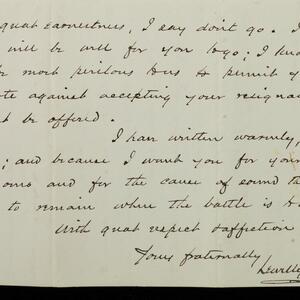 great earnestness, I say don't go. I
will be well for you to go; I know
most perilous thus to permit y
ote against accepting your resigna
t be offered.
I have written warmly,
; and because I want you for your
oms and for the cause of sound th
to remain when the battle is
With great respect & affection
Yours fraternally